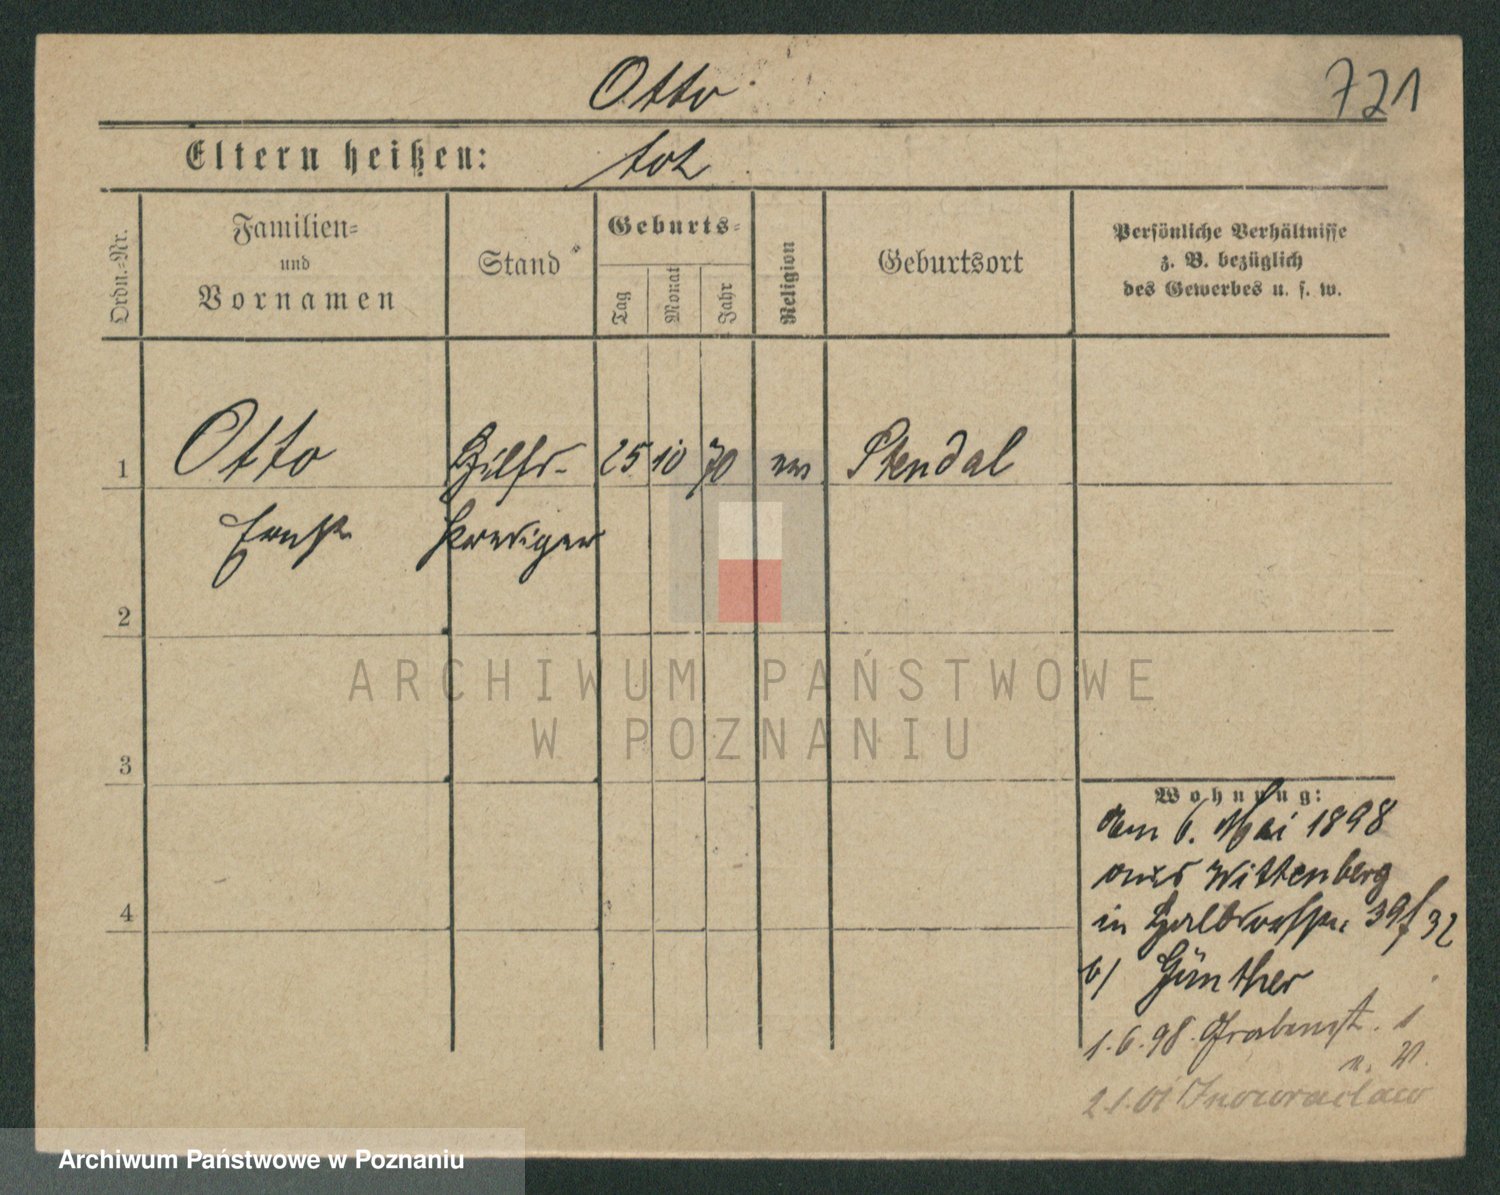 Otto
721
Eltern heißen: tot
Ordn.-Nr.
Familien-
und
Vornamen
Stand
Geburts-
Tag
Monat
Jahr
Religion
Geburtsort
Persönliche Verhältnisse
z. B. bezüglich
des Gewerbes u. s. w.
1 Otto Hilfs- 25 10 70 ev Stendal
Ernst prediger
2
3
4
ARCHIWUM PAŃSTWOWE
W POZNANIU
Wohnung:
am 6. Mai 1898
aus Wittenberg
in 39/32
b/ Günther
1.6.98. Grabenst. 1
n. V.
2.1.01 Inowraclaw
Archiwum Państwowe w Poznaniu